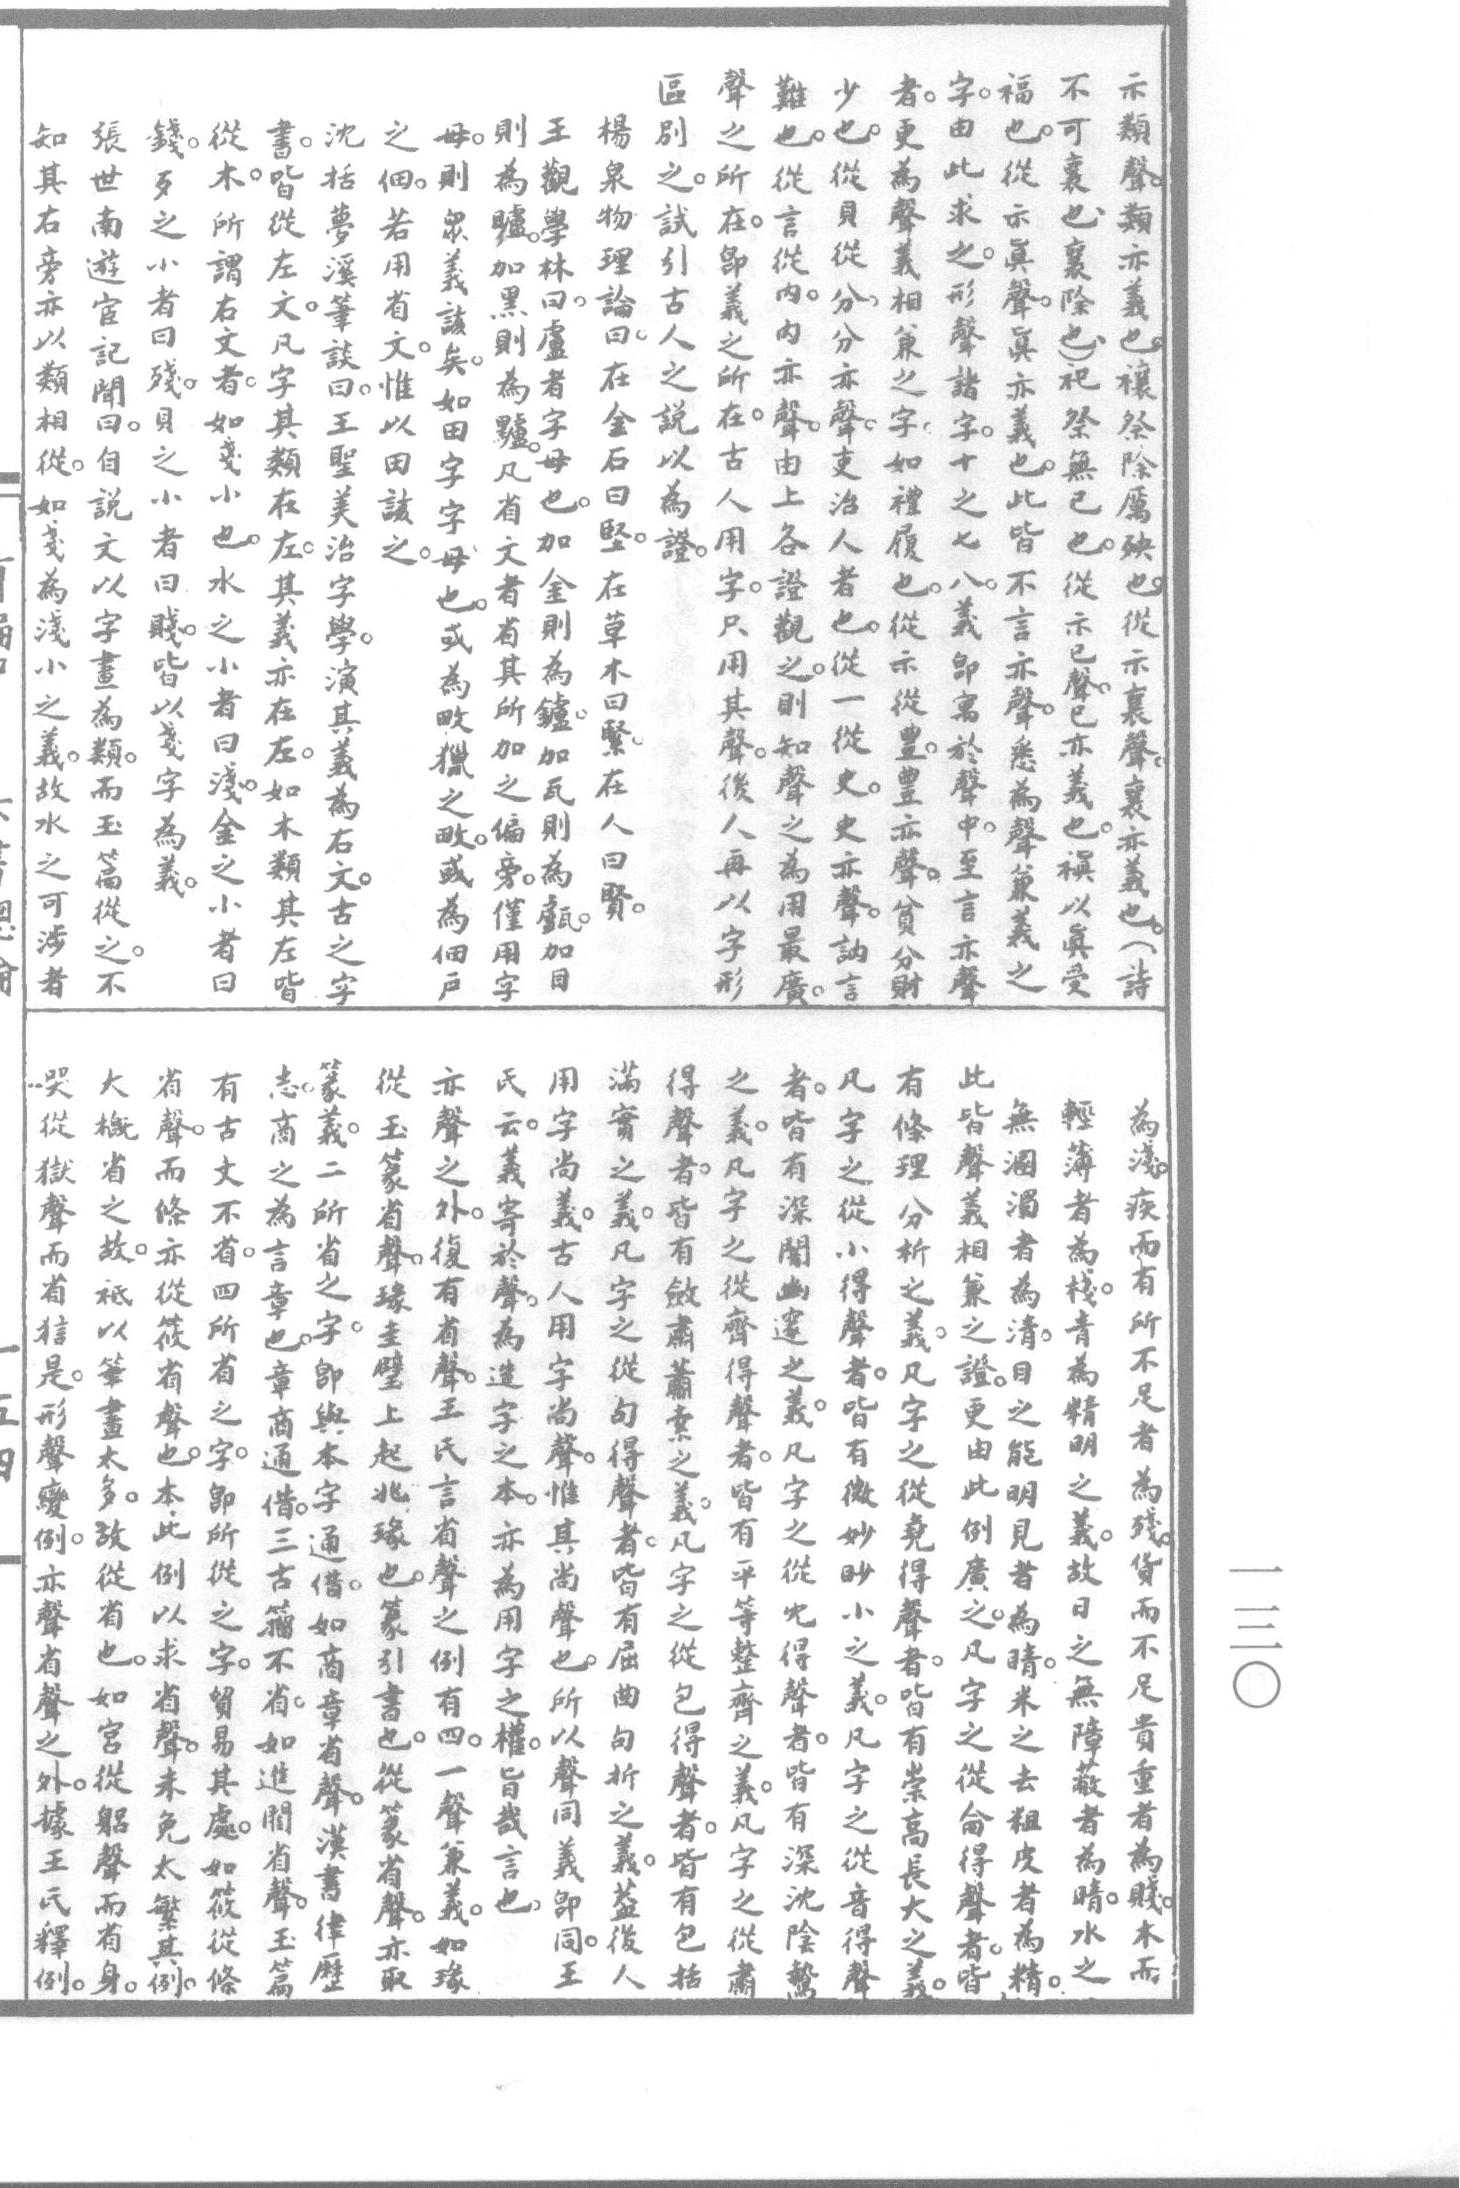 示類聲。類亦義也。禳祭除厲殃也。從示襄聲。襄亦義也。（詩
不可襄也、襄除也）祀祭無已也。從示巳聲。巳亦義也。禛以眞受
福也。從示眞聲。眞亦義也。此皆不言亦聲。悉為聲兼義之
字。由此求之。形聲諸字。十之七八。義卽寓於聲中。至言亦聲
者。更為聲義相兼之字。如禮履也。從示從豊。豊亦聲。貧分財
少也。從貝從分、分亦聲。吏治人者也。從一從史。史亦聲。訥言
難也。從言從內。內亦聲。由上各證觀之。則知聲之為用最廣。
聲之所在。卽義之所在。古人用字。只用其聲。後人再以字形
區別之。試引古人之説以為證。
楊泉物理論曰。在金石曰堅。在草木曰緊。在人曰賢。
王觀學林曰。盧者字母也。加金則為鑪。加瓦則為甗。加目
則為矑。加黑則為黸。凡省文者。省其所加之偏旁。僅用字
母。則眾義該矣。如田字字母也。或為畋獵之畋。或為佃戶
之佃。若用省文。惟以田該之。
沈括夢溪筆談曰。王聖美治字學。演其義為右文。古之字
書。皆從左文。凡字其類在左。其義亦在左。如木類其左皆
從木。所謂右文者。如戔小也。水之小者曰淺。金之小者曰
錢。歹之小者曰殘。貝之小者曰賤。皆以戔字為義。
張世南遊宦記聞曰。自説文以字畫為類。而玉篇從之。不
知其右旁亦以類相從。如戔為淺小之義。故水之可涉者
為淺。疾而有所不足者為殘。貨而不足貴重者為賤。木而
輕薄者為棧。青為精明之義。故日之無障蔽者為晴。水之
無溷濁者為清。目之能明見者為睛。米之去粗皮者為精。
此皆聲義相兼之證。更由此例廣之。凡字之從侖得聲者。皆
有條理分析之義。凡字之從堯得聲者。皆有崇高長大之義。
凡字之從小得聲者。皆有微妙眇小之義。凡字之從音得聲
者。皆有深闇幽邃之義。凡字之從尤得聲者。皆有深沈陰鷙
之義。凡字之從齊得聲者。皆有平等整齊之義。凡字之從肅
得聲者。皆有斂肅蕭索之義。凡字之從包得聲者。皆有包括
滿實之義。凡字之從句得聲者。皆有屈曲句折之義。葢後人
用字尚義。古人用字尚聲。惟其尚聲也。所以聲同義卽同。王
氏云。義寄於聲。為造字之本。亦為用字之權。旨哉言也。
亦聲之外。復有省聲。王氏言省聲之例有四。一聲兼義。如瑑
從玉篆省聲。瑑圭璧上起兆瑑也。篆引書也。從篆省聲。亦取
篆義。二所省之字。卽與本字通借。如商章省聲。漢書律歷
志。商之為言章也。章商通借。三古籀不省。如進閵省聲。玉篇
有古文不省。四所省之字。卽所從之字。貿易其處。如筱從條
省聲。而條亦從筱省聲也。本此例以求省聲。未免太繁。其例
大概省之故。祇以筆畫太多。故從省也。如宮從躳聲而省身。
哭從獄聲而省㹜是。形聲變例。亦聲省聲之外。據王氏釋例。
一五四
一三〇